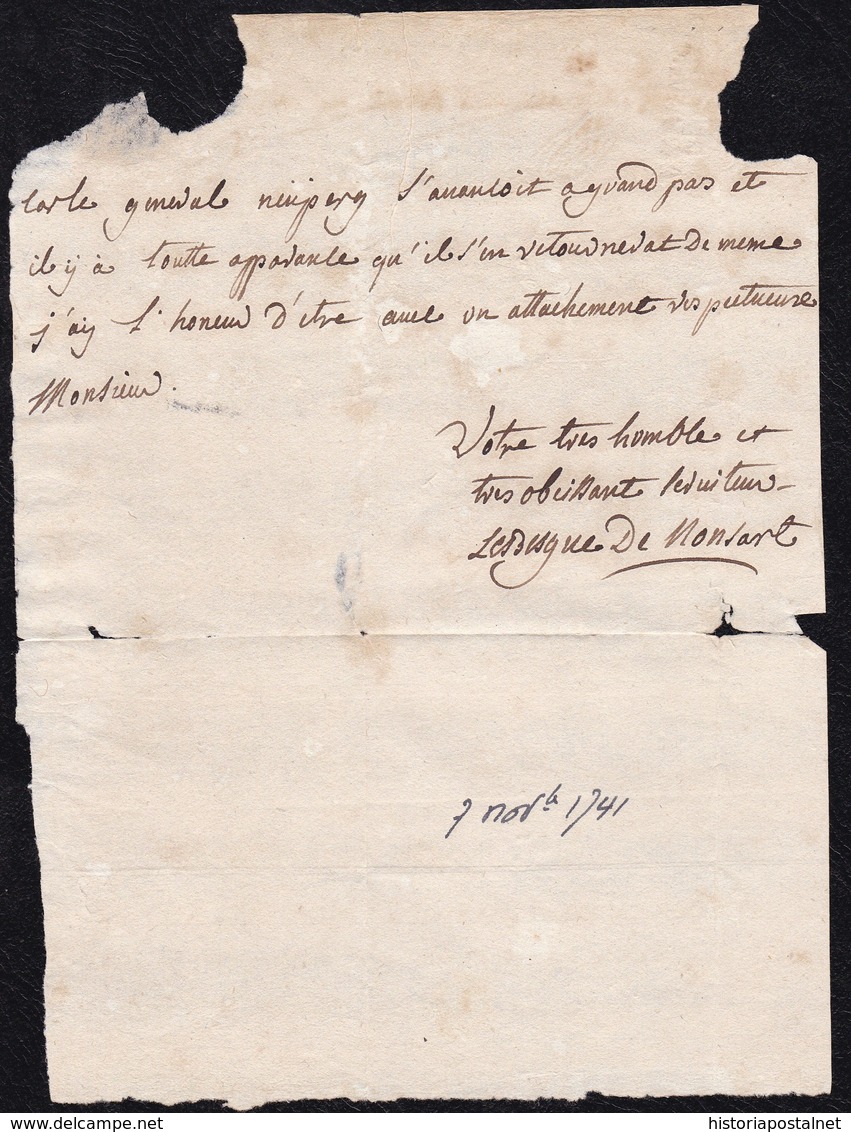 car le general neuperg s'auancoit a grand pas et
il y à toutte apparance qu'il s'en retournerat De meme
j'ay L'honeur d'etre auec un attachement respectueuse
Monsieur.
Votre tres homble et
tres obeissant seruiteur
Lesbesgue De Nonsart
7 novb 1741
www.delcampe.net
historiapostalnet